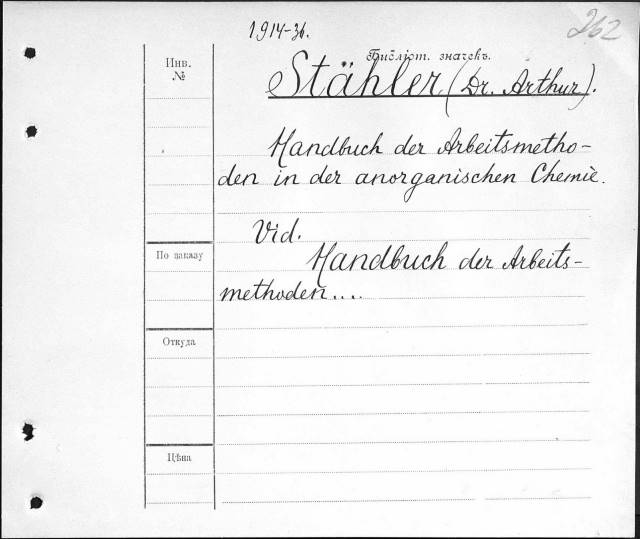 1914-36.
262
Библіот. значекъ.
Инв.
№
Stähler (Dr. Arthur).
Handbuch der Arbeitsmetho-
den in der anorganischen Chemie.
Vid.
По заказу
Handbuch der Arbeits-
methoden....
Откуда
Цѣна